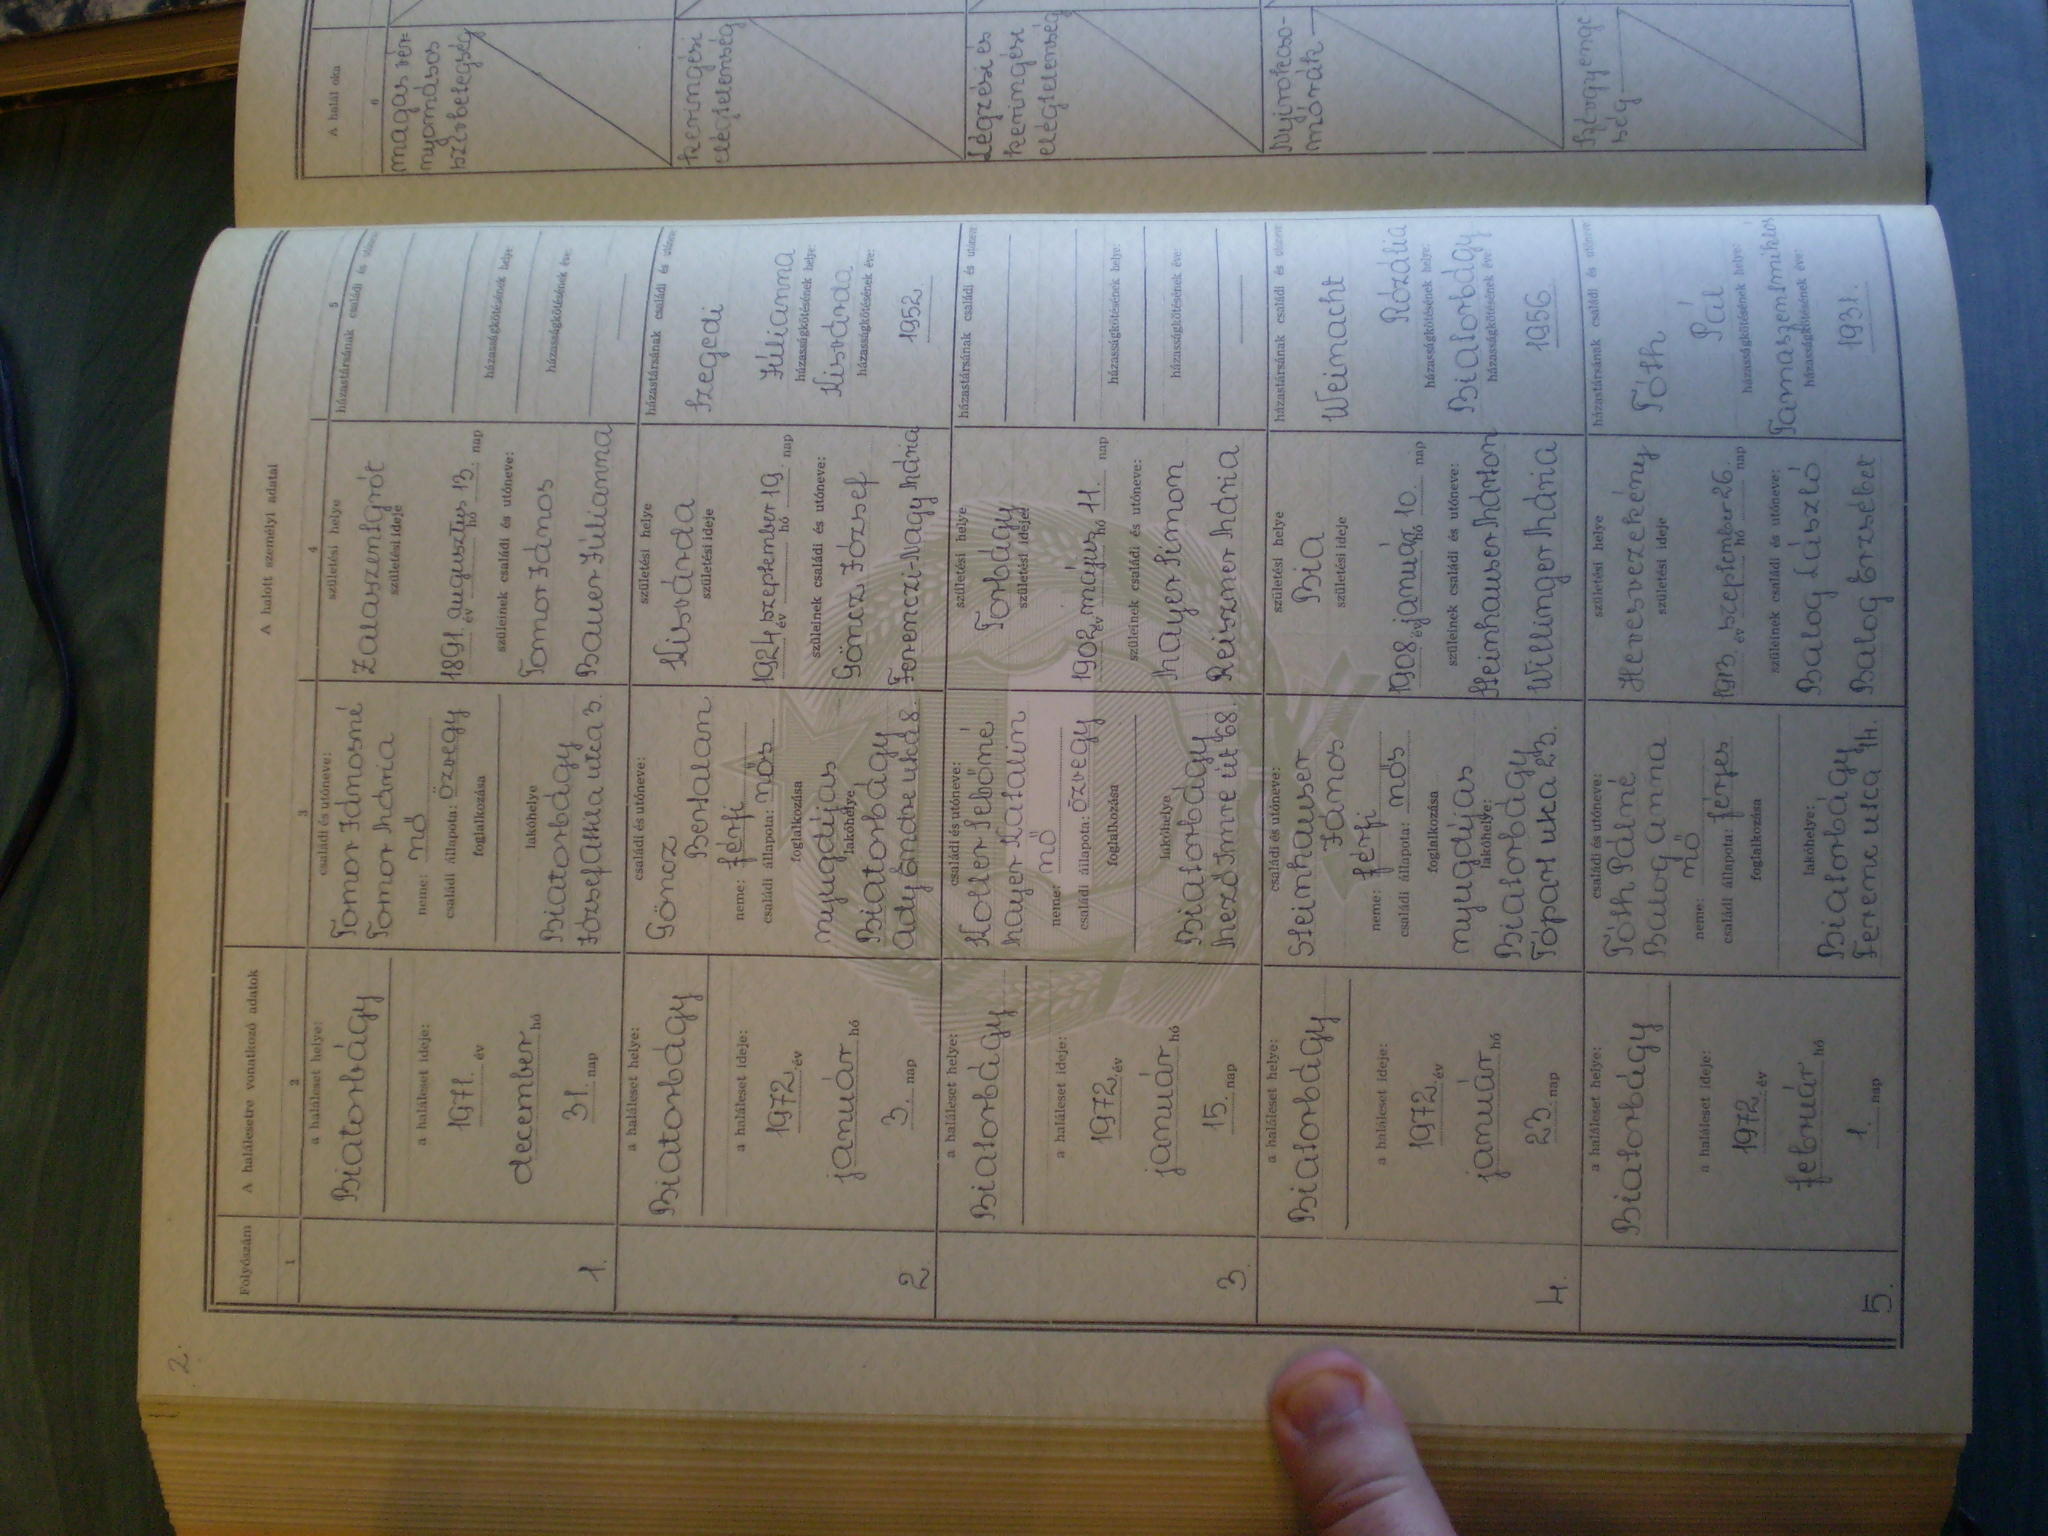 2.
Folyószám
A halálesetre vonatkozó adatok
A halott személyi adatai
A halál oka
1
2
3
4
5
6
a haláleset helye:
Biatorbágy
a haláleset ideje:
1971. év
december hó
31. nap
családi és utóneve:
Tomor Jánosné
Tomor Mária
neme: nő
családi állapota: özvegy
foglalkozása
lakóhelye
Biatorbágy
József Attila utca 3.
születési helye
Zalaszentgrót
születési ideje
1891. év augusztus hó 13. nap
szüleinek családi és utóneve:
Tomor János
Bauer Júlianna
házastársának családi és utóneve
házasságkötésének helye:
házasságkötésének éve:
magas vér-
nyomásos
szívbetegség
1.
a haláleset helye:
Biatorbágy
a haláleset ideje:
1972. év
január hó
3. nap
családi és utóneve:
Göncz
Bertalan
neme: férfi
családi állapota: nős
foglalkozása
nyugdíjas
lakóhelye
Biatorbágy
Ady Endre utca 8.
születési helye
Kisvárda
születési ideje
1924 év szeptember hó 19. nap
szüleinek családi és utóneve:
Göncz József
Ferenczi-Nagy Mária
házastársának családi és utóneve
Szegedi
Júlianna
házasságkötésének helye:
Kisvárda
házasságkötésének éve:
1952.
keringési
elégtelenség
2.
a haláleset helye:
Biatorbágy
a haláleset ideje:
1972. év
január hó
15. nap
családi és utóneve:
Koller Jebőné
Mayer Katalin
neme: nő
családi állapota: özvegy
foglalkozása
lakóhelye
Biatorbágy
Mező Imre út 68.
születési helye
Torbágy
születési ideje
1902 év május hó 11. nap
szüleinek családi és utóneve:
Mayer Simon
Reiszner Mária
házastársának családi és utóneve
házasságkötésének helye:
házasságkötésének éve:
Légzési és
keringési
elégtelenség
3.
a haláleset helye:
Biatorbágy
a haláleset ideje:
1972. év
január hó
23. nap
családi és utóneve:
Steinhauser
János
neme: férfi
családi állapota: nős
foglalkozása
nyugdíjas
lakóhelye:
Biatorbágy
Tópart utca 23.
születési helye
Bia
születési ideje
1908 év január hó 10. nap
szüleinek családi és utóneve:
Steinhauser Márton
Willinger Mária
házastársának családi és utóneve
Weinacht
Rózália
házasságkötésének helye:
Biatorbágy
házasságkötésének éve:
1956.
Nyirokcso-
mórák
4.
a haláleset helye:
Biatorbágy
a haláleset ideje:
1972. év
február hó
1. nap
családi és utóneve:
Tóth Pálné
Balog Anna
neme: nő
családi állapota: férjes
foglalkozása
lakóhelye:
Biatorbágy
Ferenc utca 14.
születési helye
Hevesvezekény
születési ideje
1913. év szeptember hó 26. nap
szüleinek családi és utóneve:
Balog László
Balog Erzsébet
házastársának családi és utóneve
Tóth
Pál
házasságkötésének helye:
Tarnaszentmiklós
házasságkötésének éve:
1931.
Szívgyenge-
ség
5.